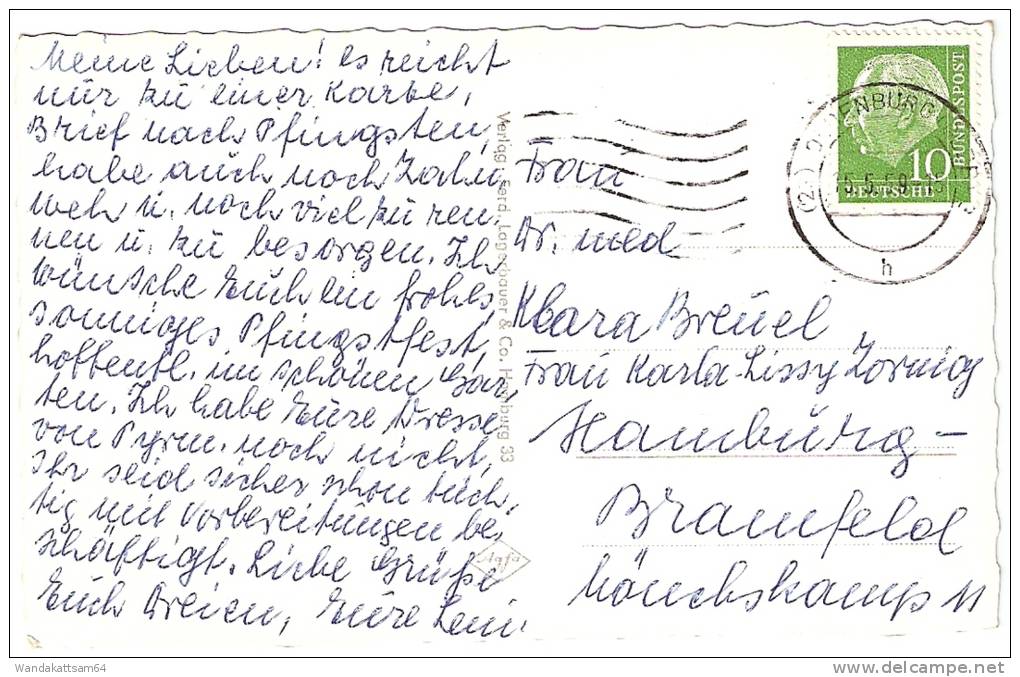 Meine Lieben! Es reicht
nur zu einer Karte,
Brief nach Pfingsten,
habe auch noch Zahn
weh u. noch viel zu ren,
nen u. zu besorgen. Ich
wünsche Euch ein frohes
sonniges Pfingstfest,
hoffentl. im schönen Gar,
ten. Ich habe Eure Adresse
von Pyrm. noch nicht,
Ihr seid sicher schon tüch,
tig mit Vorbereitungen be,
schäftigt. Liebe Grüße
Euch Dreien, Eure Leni
Verlag Ferd. Lagerbauer & Co. Hamburg 33
Agfa
Frau
Dr. med
Klara Breuel,
Frau Karla-Lissy Zornig
Hamburg-
Bramfeld
Mönchskamp 11
BUNDESPOST
10
DEUTSCHE
OLDENBURG
h
Wandakattsam64
http://www.delcampe.net